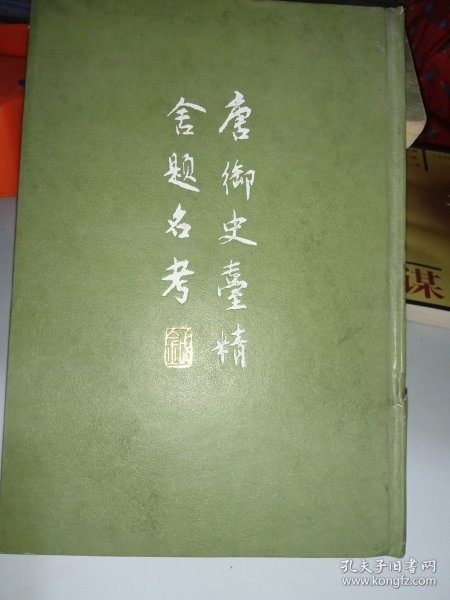 唐御史臺精
舍題名考
謀
孔夫子旧书网
www.kongfz.com